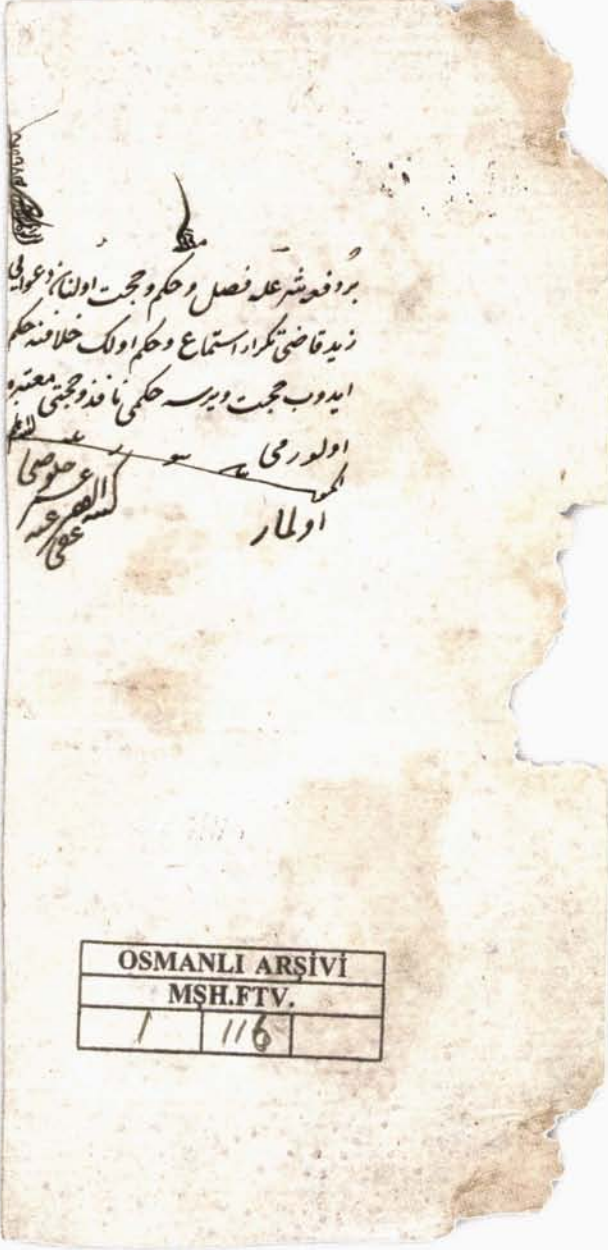 بر دفعه شرعله فصل و حكم و حجت اولنان دعوايى
زيد قاضى تكرار استماع و حكم اولك خلافنه حكم
ايدوب حجت ويرسه حكمى نافذ و حجتى معتبره
اولورمى
الجواب
اولماز
كتبه الفقير
عفى عنه
OSMANLI ARŞİVİ
MŞH.FTV.
1 116